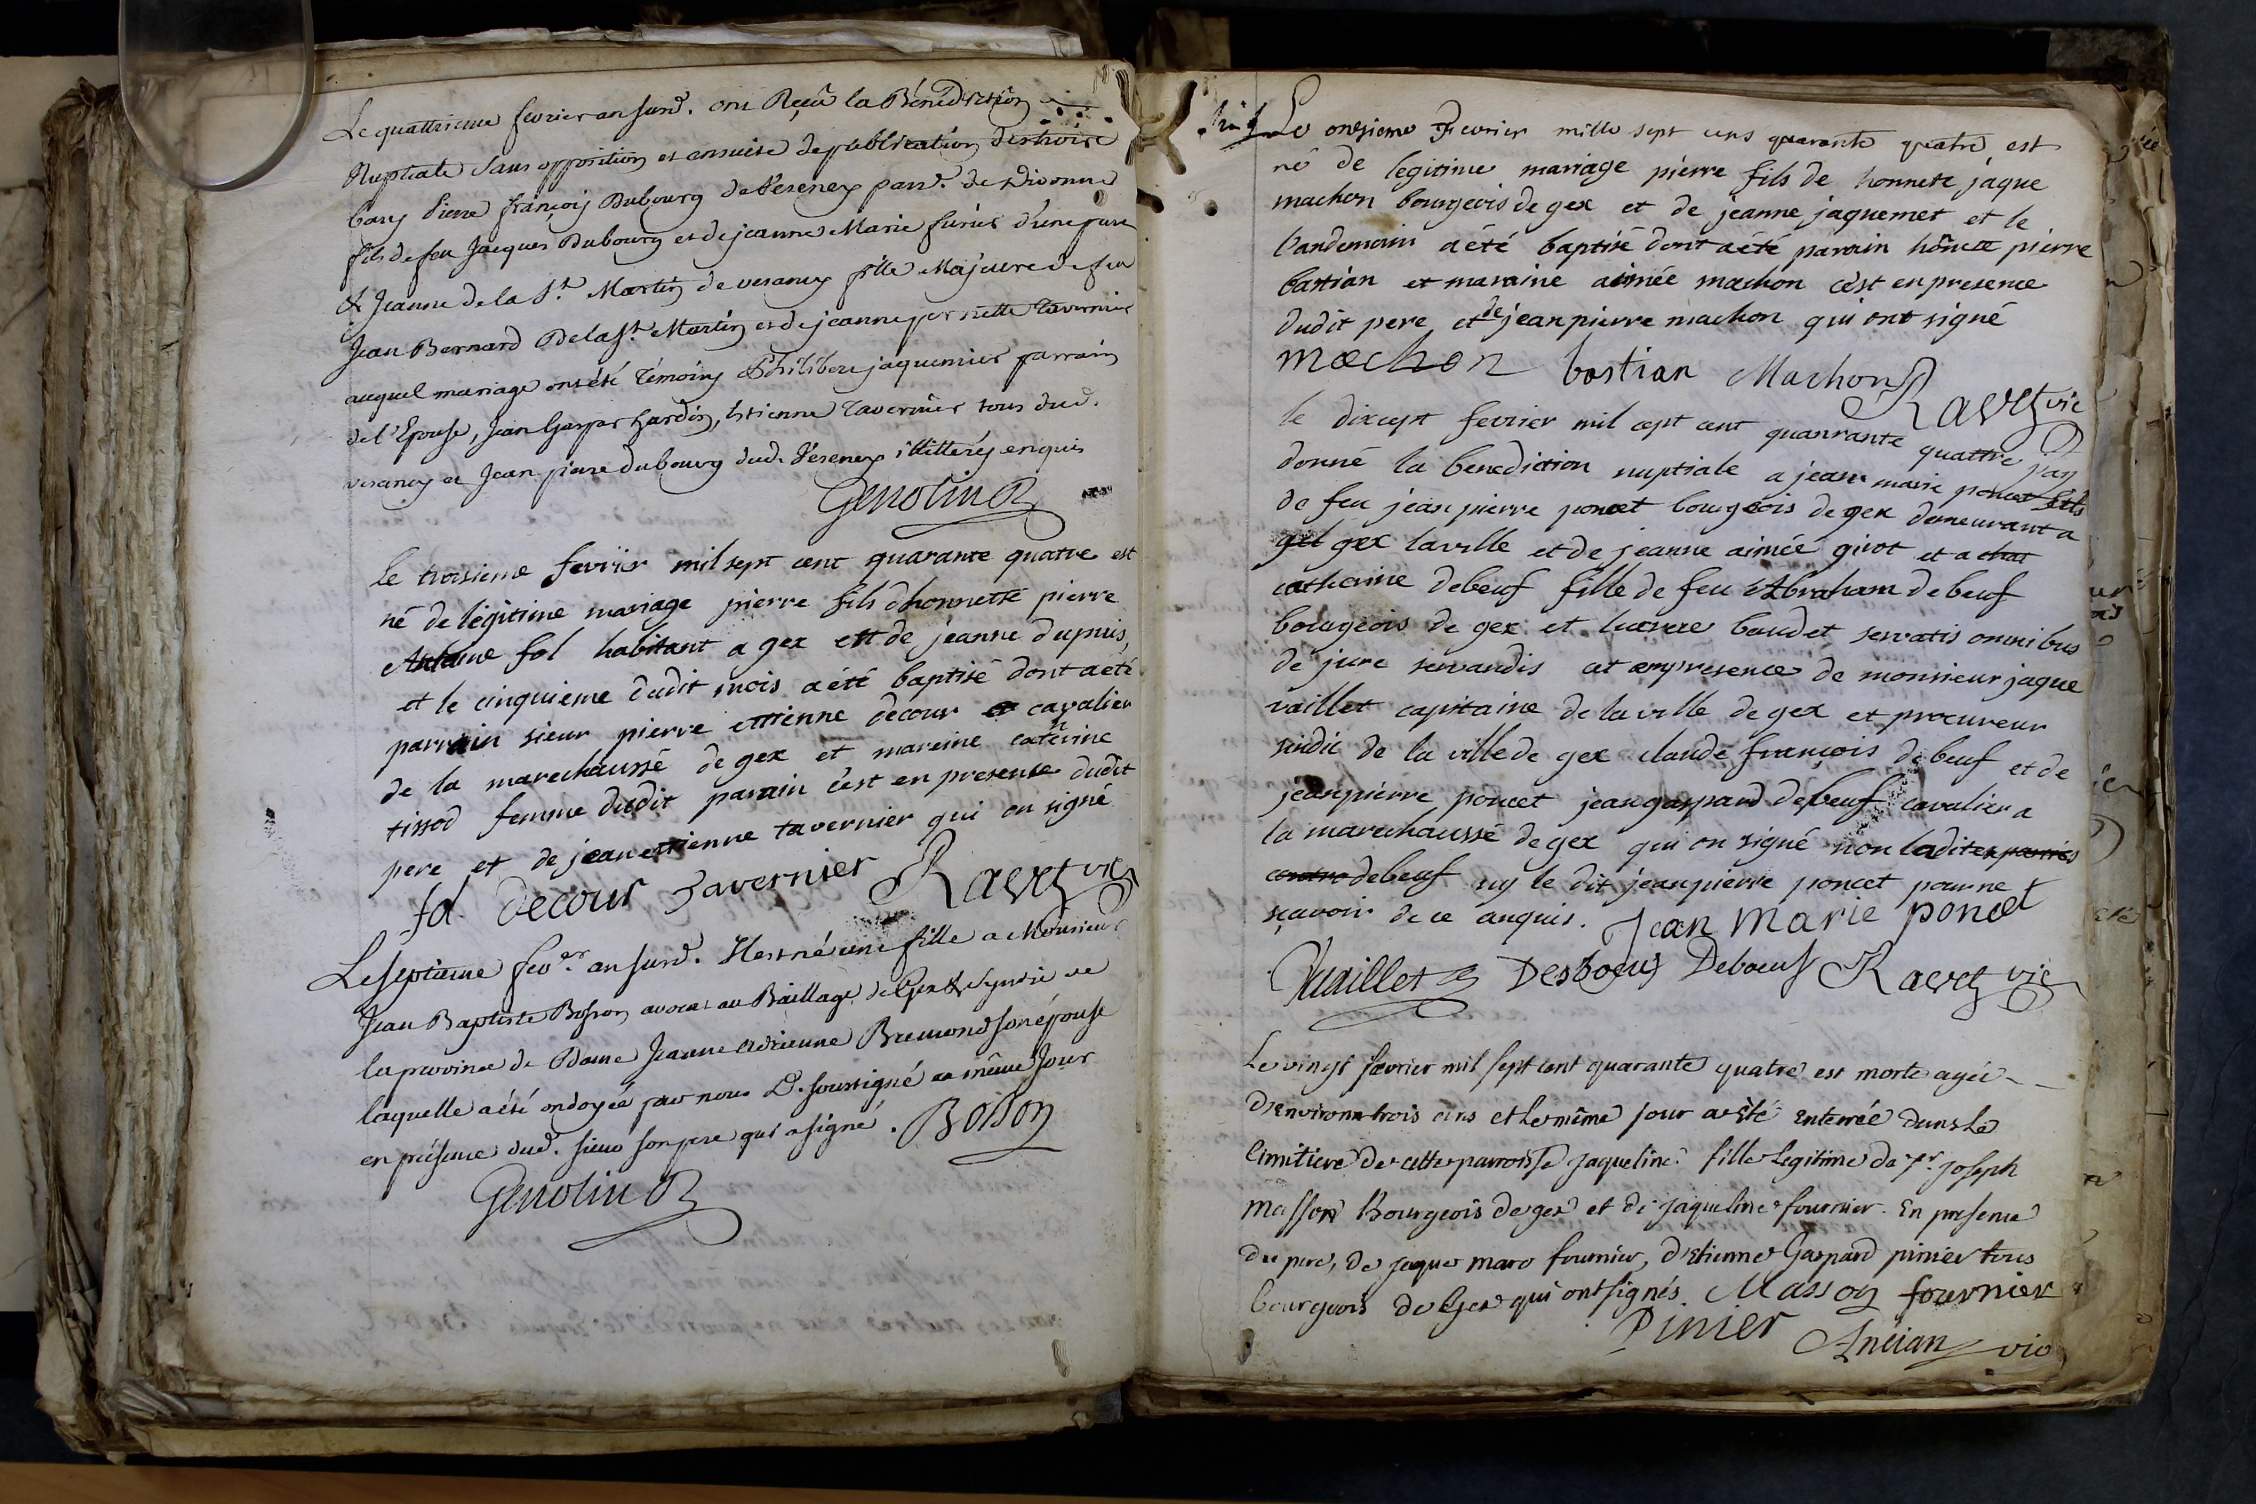 Le quattrieme fevrier an susd. ont Reçû la Bénédiction
Nuptiale sans opposition et ensuite de publication des trois
bans Pierre françois Dubourg de Vesenex parr. de Divonne
fils de feu Jacques Dubourg et de jeanne Marie d'une part
& Jeanne de la St. Martin de vesancy fille Majeure de feu
Jean Bernard De la St. Martin et de jeanne pernette Tavernier
auquel mariage ont été Témoins Philibert jaquemier parrain
de l'Epouse, Jean Gaspar hardin, Estienne Tavernier tous dud.
vesancy et Jean pierre dubourg dud. Vesenex illitterés enquis
Genolin
le troisieme fevrier mil sept cent quarante quatre est
né de légitime mariage pierre fils d'honnette pierre
Antoine fol habitant a gex et de jeanne dupuis,
et le cinquieme dudit mois a été baptisé dont a été
parrain sieur pierre ettienne decour cavalier
de la marechaussé de gex et mareine caterine
tissod femme dudit parain c'est en presence dudit
pere et de jean ettienne tavernier qui on signé
fol decour Tavernier Ravet vic
Le septieme fever. an susd. Il est né une fille a Monsieur
Jean Baptiste Bosson avocat au Baillage de Gex & Syndic de
la province de Dame Jeanne Adrienne Bremond son épouse
laquelle a été ondoyée par nous D. soussigné ce même Jour
en présence dud. sieur son pere qui a signé. Bosson
Genolin
Le onzieme Fevrier mille sept cens quarante quatre est
né de legitime mariage pierre fils de honnete jaque
machon bourgeois de gex et de jeanne jaquemet et le
l'andemain a été baptisé dont a été parrain hônete pierre
bastian et maraine aimée machon c'est en presence
dudit pere et de jean pierre machon qui ont signé
machon bastian Machon
Ravet vic
le dixcept fevrier mil cept cent quanrante quattre j'ay
donné la benediction nuptiale a jean marie poncet fils
de feu jean pierre poncet bourgeois de gex demeurant a
gex gex la ville et de jeanne aimée girot et a chat
catherine debeuf fille de feu Abraham debeuf
bourgeois de gex et lucrece baudet servatis omnibus
de jure servandis et empresence de monsieur jaque
vaillet capitaine de la ville de gex et procureur
sindic de la ville de gex claude françois debeuf et de
jean pierre poncet jean gaspard debeuf cavalier a
la marechaussé de gex qui on signé non ladite
debeuf ny le dit jean pierre poncet pour ne
sçavoir de ce anquis. Jean Marie poncet
Vuaillet Desboeuf Deboeuf Ravet vic
Le vingt fevrier mil sept cent quarante quatre est morte agée
d'environ trois ans et le même jour a été enterrée dans le
Cimitiere de cette parroisse jaqueline fille legitime de Sr. joseph
Masson Bourgeois de gex et de jaqueline fournier. En presence
du pere, de jaque marc fournier, d'etienne Gaspard pinier tous
bourgeois de Gex qui ont signés. Masson fournier
Pinier Ancian vic